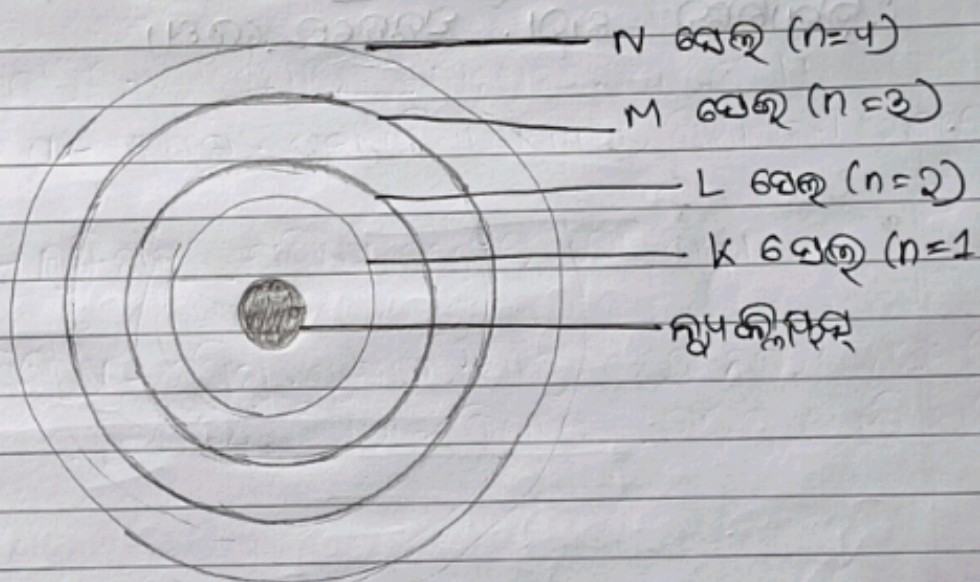 N ସେଲ (n=4)
M ସେଲ (n=3)
L ସେଲ (n=2)
K ସେଲ (n=1
ନ୍ୟୁକ୍ଲିୟସ୍